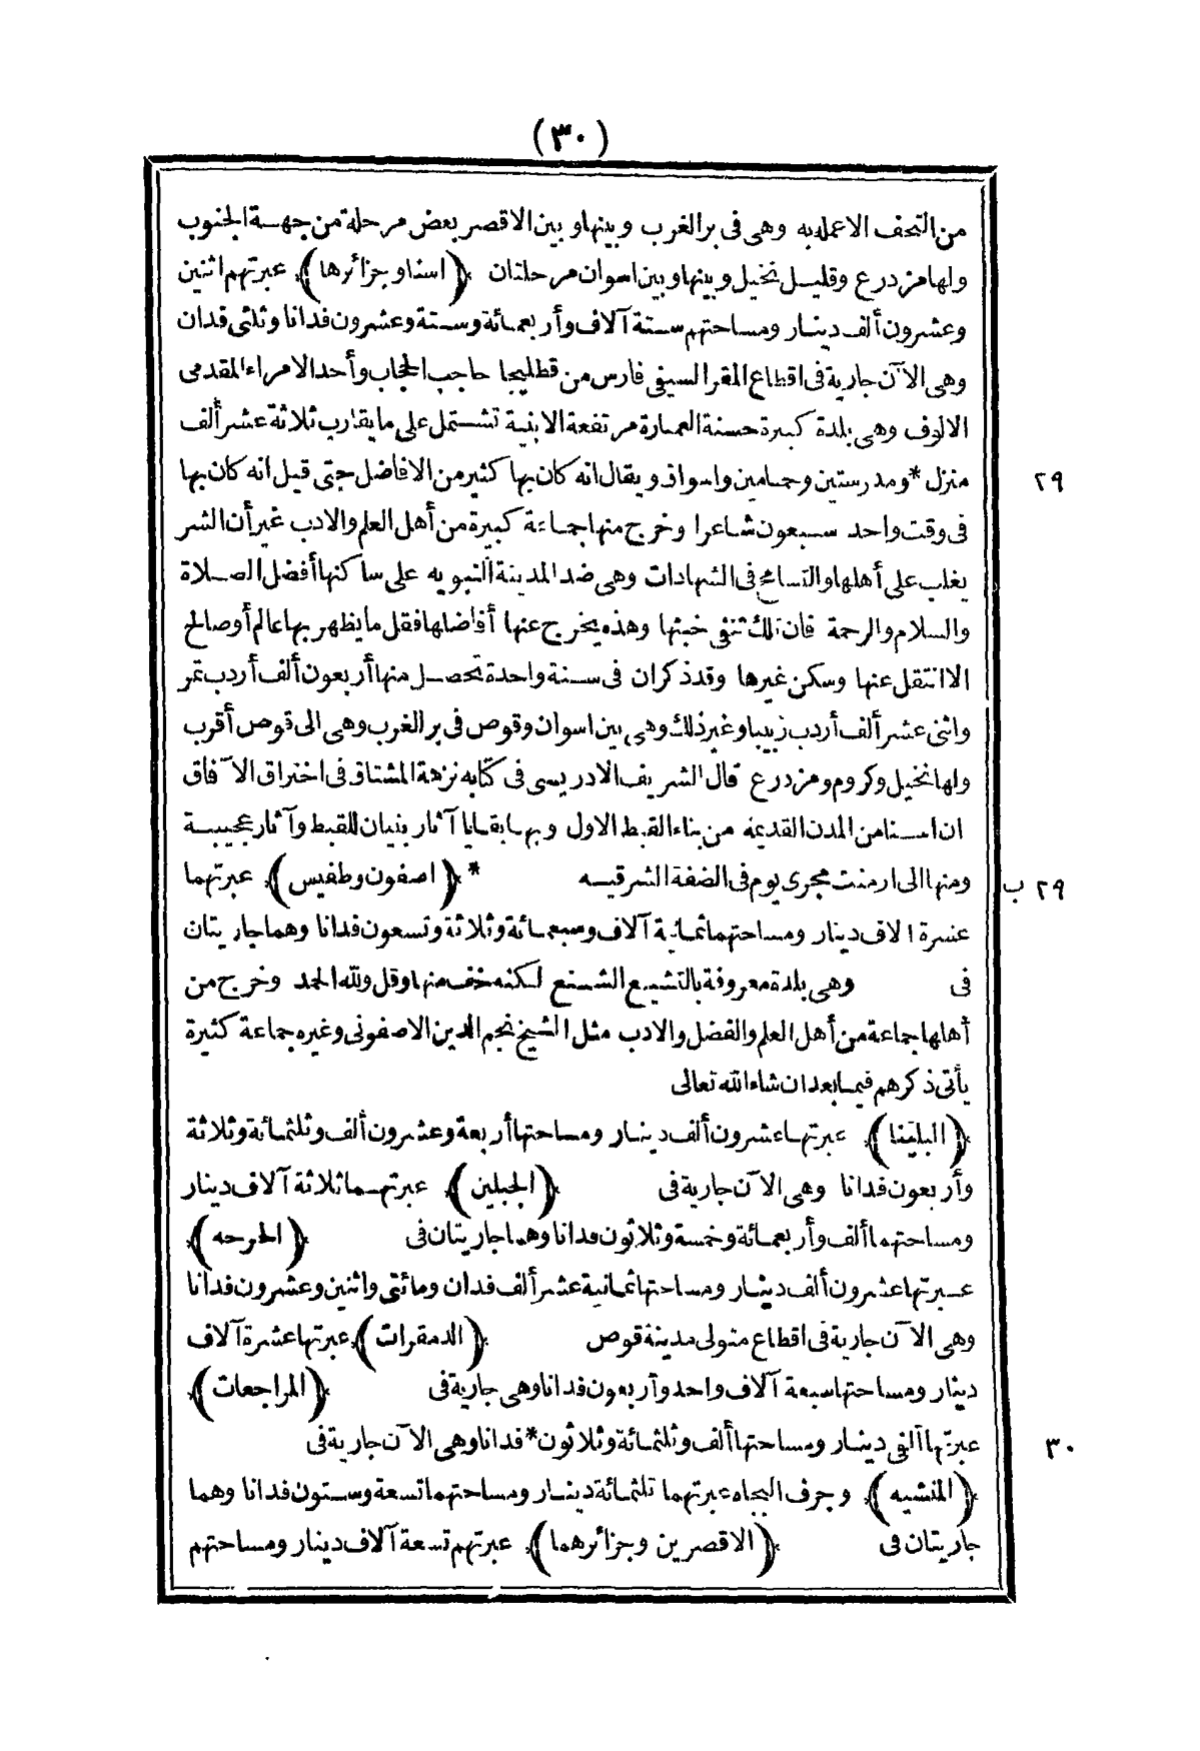 (٣٠)
من التحف الا عمله به وهى فى بر الغرب وبينها وبين الاقصر بعض مرحلة من جهة الجنوب
ولها مزدرع وقليل نخيل وبينها وبين اسوان مرحلتان ﴿اسنا وجزائرها﴾ عبرتهم اثنين
وعشرون ألف دينار ومساحتهم ستة آلاف وأربعمائة وستة وعشرون فدانا وثلثى فدان
وهى الآن جارية فى اقطاع المقر السيفى فارس من قطليجا حاجب الحجاب وأحد الامراء المقدمى
الالوف وهى بلدة كبيرة حسنة العمارة مرتفعة الابنية تشتمل على ما يقارب ثلاثة عشر ألف
منزل * ومدرستين وحمامين واسواق ويقال انه كان بها كثير من الافاضل حتى قيل انه كان بها ٢٩
فى وقت واحد سبعون شاعرا وخرج منها جماعة كبيرة من أهل العلم والادب غير أن الشر
يغلب على أهلها والتسامح فى الشهادات وهى ضد المدينة النبويه على ساكنها أفضل الصلاة
والسلام والرحمة فان تلك تنفى خبثها وهذه يخرج عنها أفاضلها فقل ما يظهر بها عالم أو صالح
الا انتقل عنها وسكن غيرها وقد ذكر ان فى سنة واحدة تحصل منها أربعون ألف أردب تمر
واثنى عشر ألف أردب زبيبا وغير ذلك وهى بين اسوان وقوص فى بر الغرب وهى الى قوص أقرب
ولها نخيل وكروم ومزدرع قال الشريف الادريسى فى كتابه نزهة المشتاق فى اختراق الآفاق
ان اسنا من المدن القديمة من بناء القبط الاول وبها بقايا آثار بنيان للقبط وآثار عجيبة
ومنها الى ارمنت مجرى يوم فى الضفة الشرقيه * ﴿اصفون وطفيس﴾ عبرتهما ٢٩ ب
عشرة الاف دينار ومساحتهما ثمانية آلاف وسبعمائة وثلاثة وتسعون فدانا وهما جاريتان
فى وهى بلدة معروفة بالتشيع الشنع لكنه خف منها وقل ولله الحمد وخرج من
أهلها جماعة من أهل العلم والفضل والادب مثل الشيخ نجم الدين الاصفونى وغيره جماعة كثيرة
يأتى ذكرهم فيما بعد ان شاء الله تعالى
﴿البلينا﴾ عبرتها عشرون ألف دينار ومساحتها أربعة وعشرون ألف وثلثمائة وثلاثة
وأربعون فدانا وهى الآن جارية فى ﴿الجبلين﴾ عبرتهما ثلاثة آلاف دينار
ومساحتهما ألف وأربعمائة وخمسة وثلاثون فدانا وهما جاريتان فى ﴿الحرحه﴾
عبرتها عشرون ألف دينار ومساحتها ثمانية عشر ألف فدان ومائتى واثنين وعشرون فدانا
وهى الآن جارية فى اقطاع متولى مدينة قوص ﴿الدمقرات﴾ عبرتها عشرة آلاف
دينار ومساحتها سبعة آلاف واحد وأربعون فدانا وهى جارية فى ﴿المراجعات﴾
عبرتها ألفى دينار ومساحتها ألف وثلثمائة وثلاثون * فدانا وهى الآن جارية فى ٣٠
﴿المنشيه﴾ وجرف البجاه عبرتهما ثلثمائة دينار ومساحتهما تسعة وستون فدانا وهما
جاريتان فى ﴿الاقصرين وجزائرهما﴾ عبرتهم تسعة آلاف دينار ومساحتهم